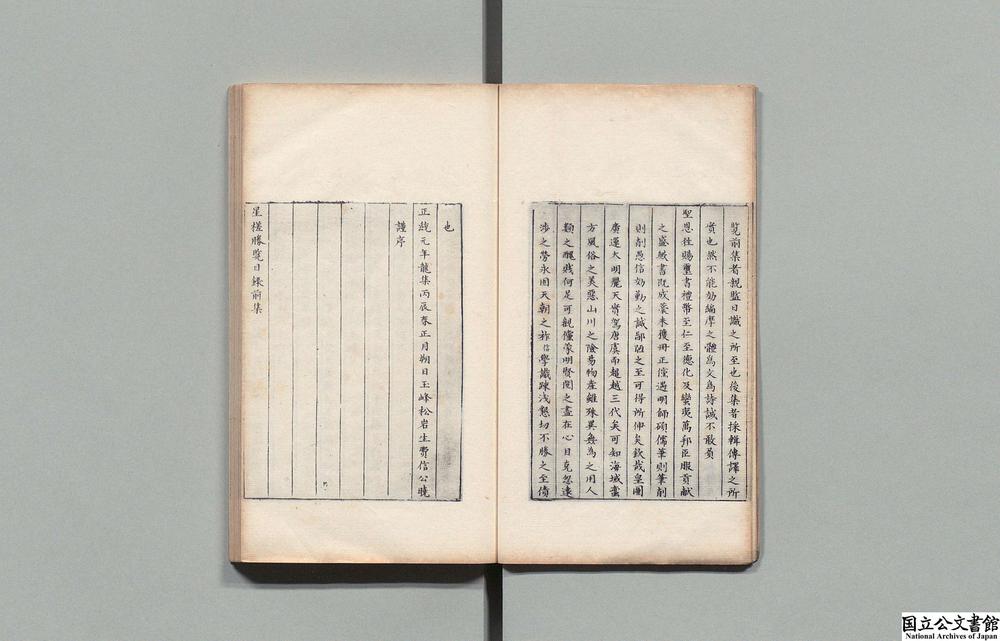 覽前集者親監目識之所至也後集者採輯傳譯之所
實也然不能効編摩之體爲文爲詩誠不敢負
聖恩往賜璽書禮幣至仁至德化及蠻夷萬邦臣服貢獻
之盛故書旣成藁未獲冊正僅遇明師碩儒筆則筆削
則削愚信効勤之誠鄙陋之至可得所伸矣欽哉皇圖
廣運大明麗天實駕唐虞而超越三代矣可知海域蠻
方風俗之美惡山川之險易物産雖殊異無爲之用人
類之醜賤何足可觀僅蒙明賢閱之盡在心目克忽遠
涉之勞永固天朝之祚信學識疎浅懇切不勝之至僨
也
正統元年龍集丙辰春正月朔日玉峰松岩生費信公曉
謹序
星槎勝覽目錄前集
国立公文書館
National Archives of Japan